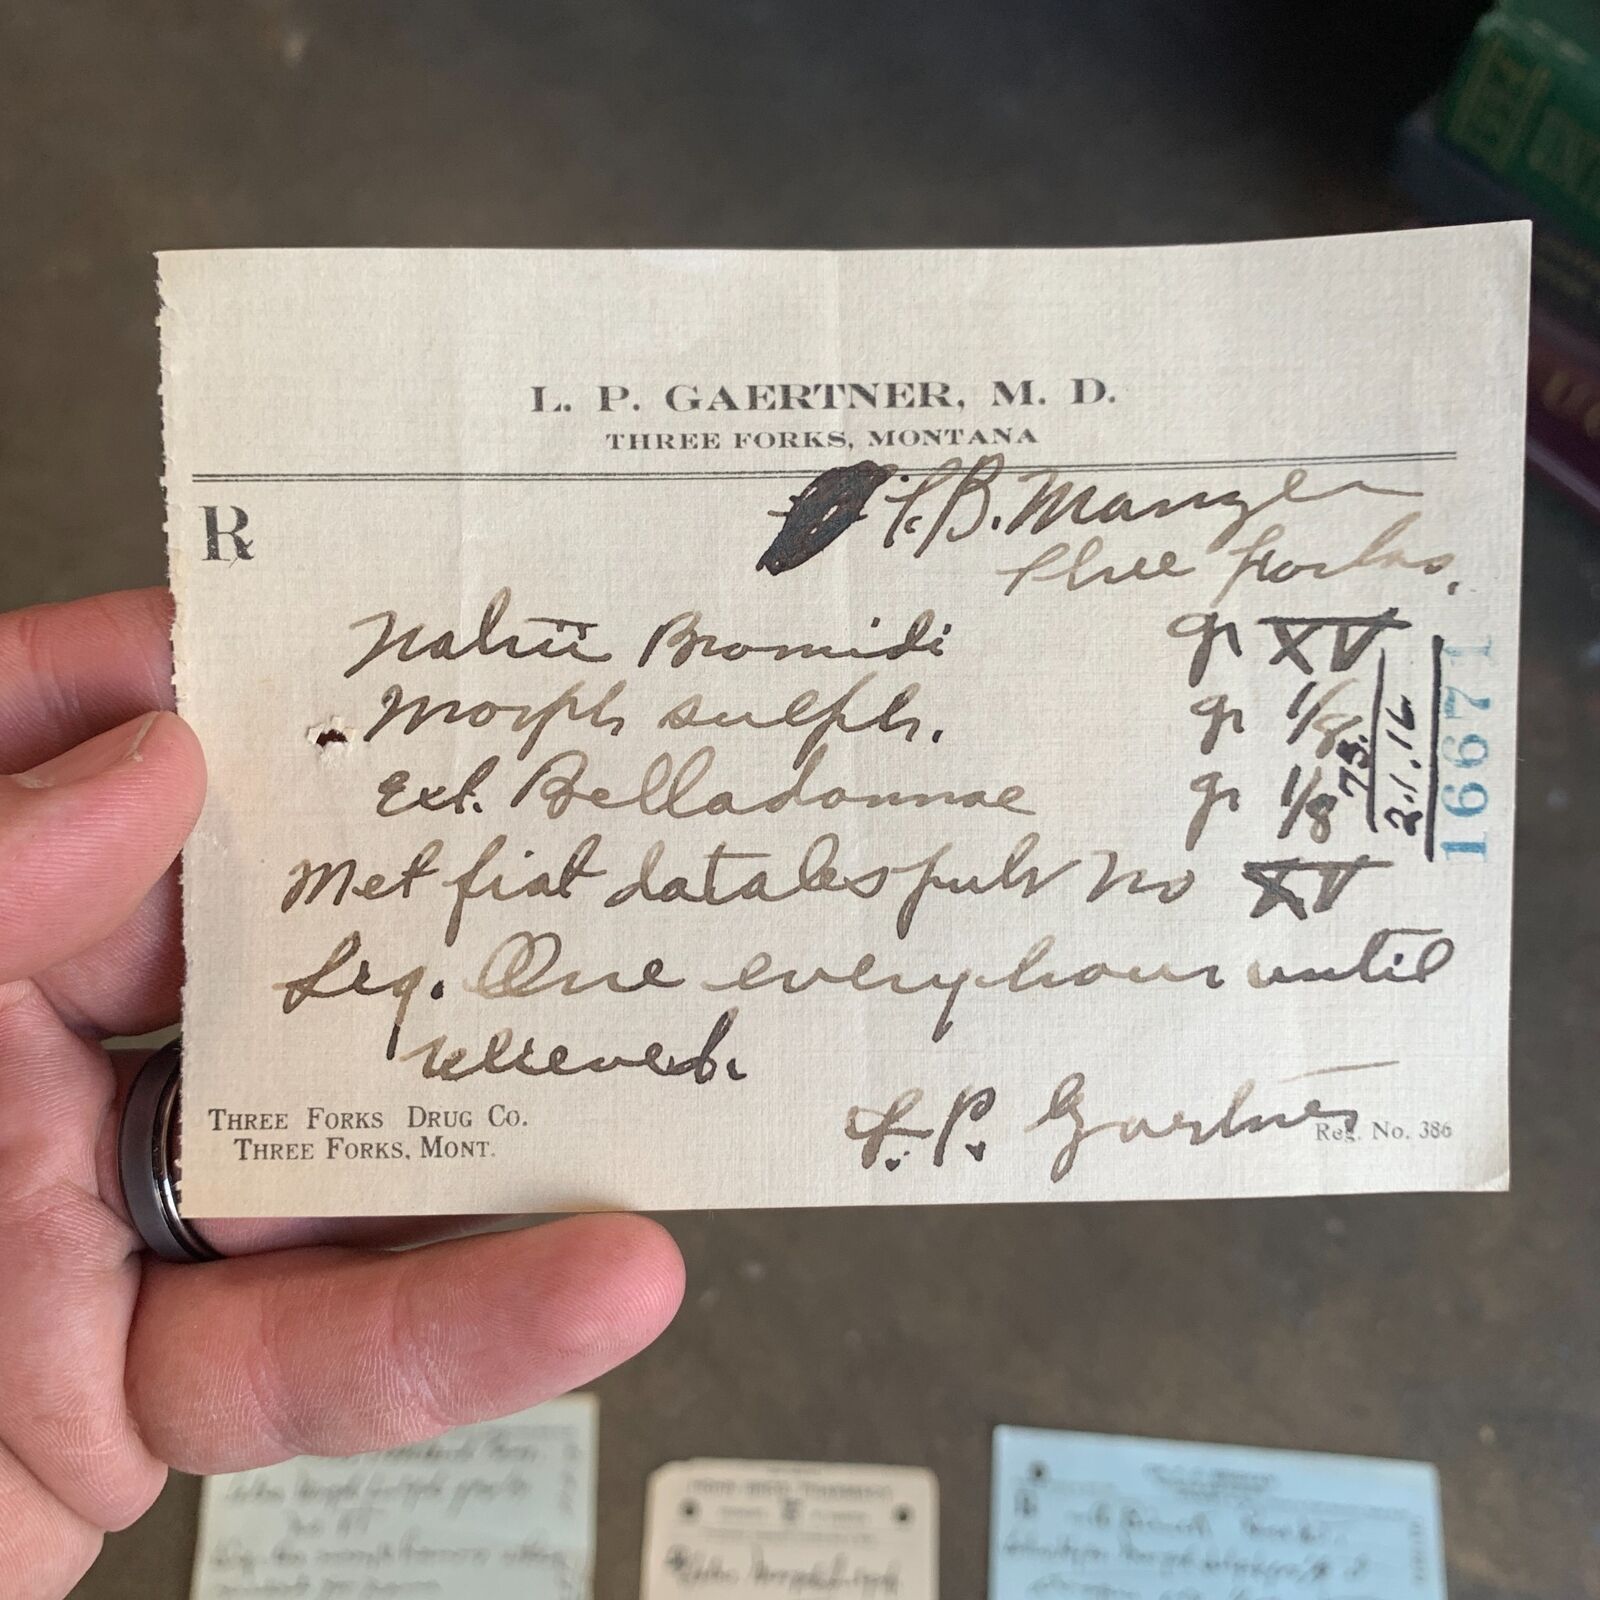 L. P. GAERTNER, M. D.
THREE FORKS, MONTANA
R
F. B. Manzer
Three Forks.
Natrii Bromidi gr XV
Morph sulph. gr 1/8
Ext. Belladonnae gr 1/8
75.
2.1.16
16671
Met fiat datales pulv No XV
Sig. One every hour until
relieved.
L. P. Gaertner
THREE FORKS DRUG CO.
THREE FORKS, MONT.
Reg. No. 386